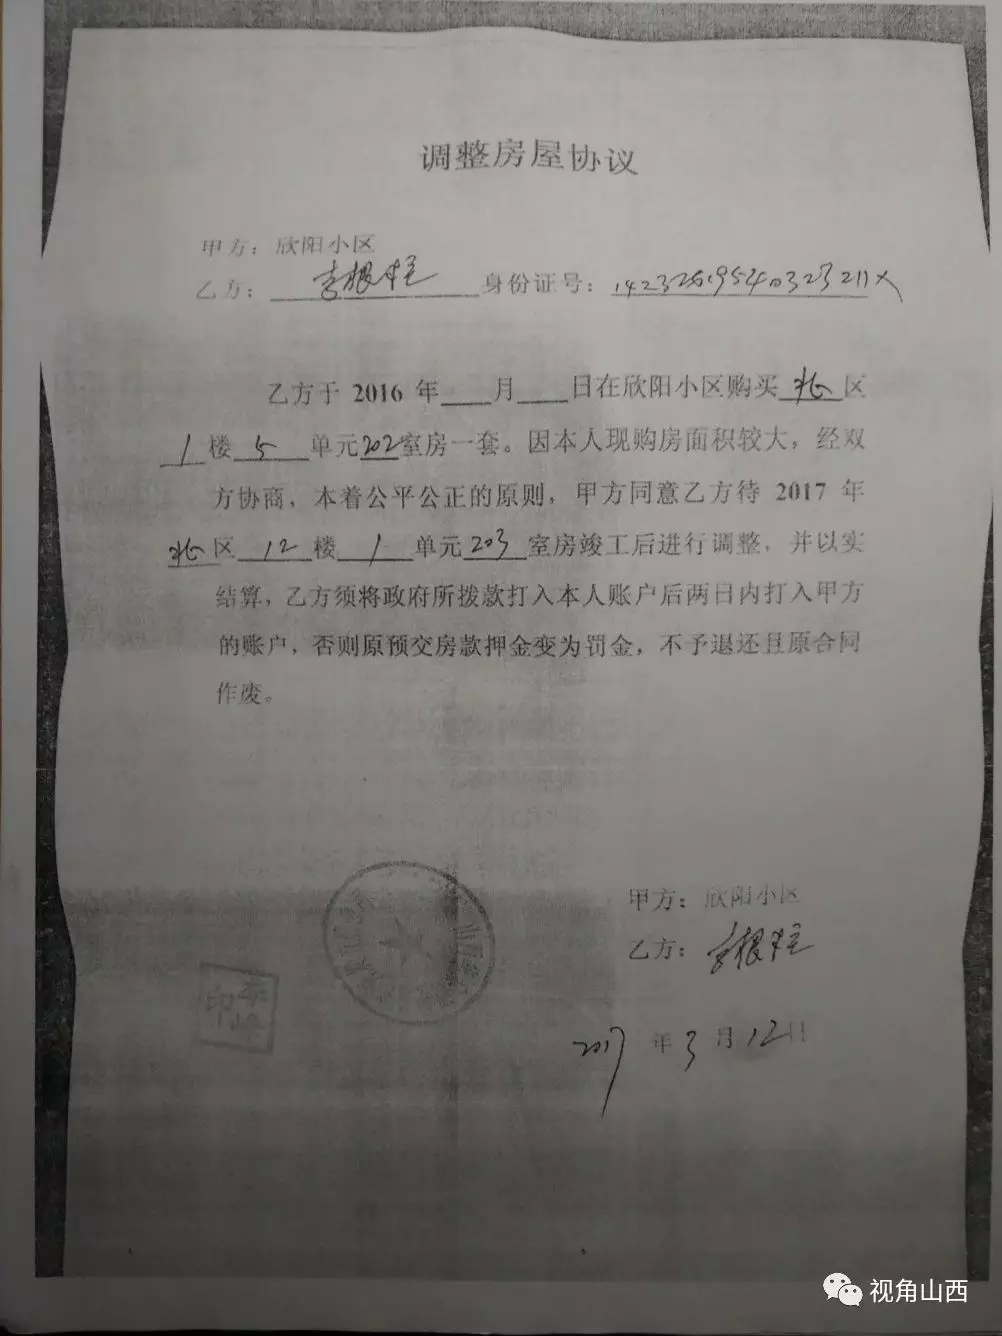 调整房屋协议
甲方：欣阳小区
乙方：李根柱 身份证号：14232619540323211X
乙方于 2016 年 月 日在欣阳小区购买 北 区
1 楼 5 单元 202 室房一套。因本人现购房面积较大，经双
方协商，本着公平公正的原则，甲方同意乙方待 2017 年
北 区 12 楼 1 单元 203 室房竣工后进行调整，并以实
结算，乙方须将政府所拨款打入本人账户后两日内打入甲方
的账户，否则原预交房款押金变为罚金，不予退还且原合同
作废。
甲方：欣阳小区
乙方：李根柱
2017 年 3 月 12 日
视角山西